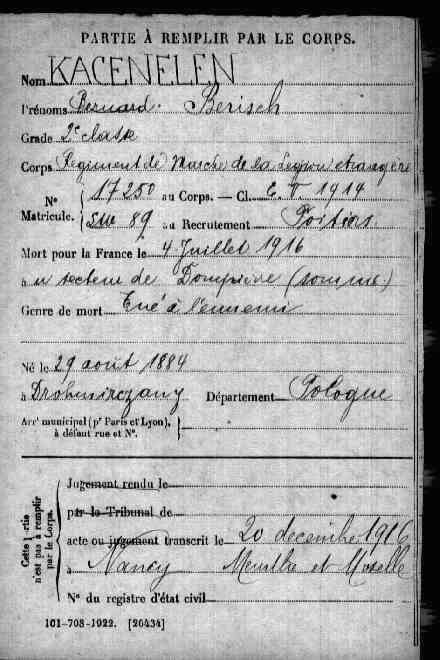 PARTIE À REMPLIR PAR LE CORPS.
Nom KACENELEN
Prénoms Bernard. Berisch
Grade 2e classe
Corps Régiment de Marche de la Légion étrangère
No Matricule. 17250 au Corps. — Cl. E. V 1914
89 au Recrutement Poitiers
Mort pour la France le 4 Juillet 1916
à secteur de Dompierre (somme)
Genre de mort Tué à l'ennemi
Né le 29 août 1884
à Département Pologne
Arrt municipal (pr Paris et Lyon),
à défaut rue et No.
Cette partie n'est pas à remplir par le Corps.
Jugement rendu le
par le Tribunal de
acte ou jugement transcrit le 20 decembre 1916
à Nancy Meurthe et Moselle
No du registre d'état civil
101-708-1922. [26434]